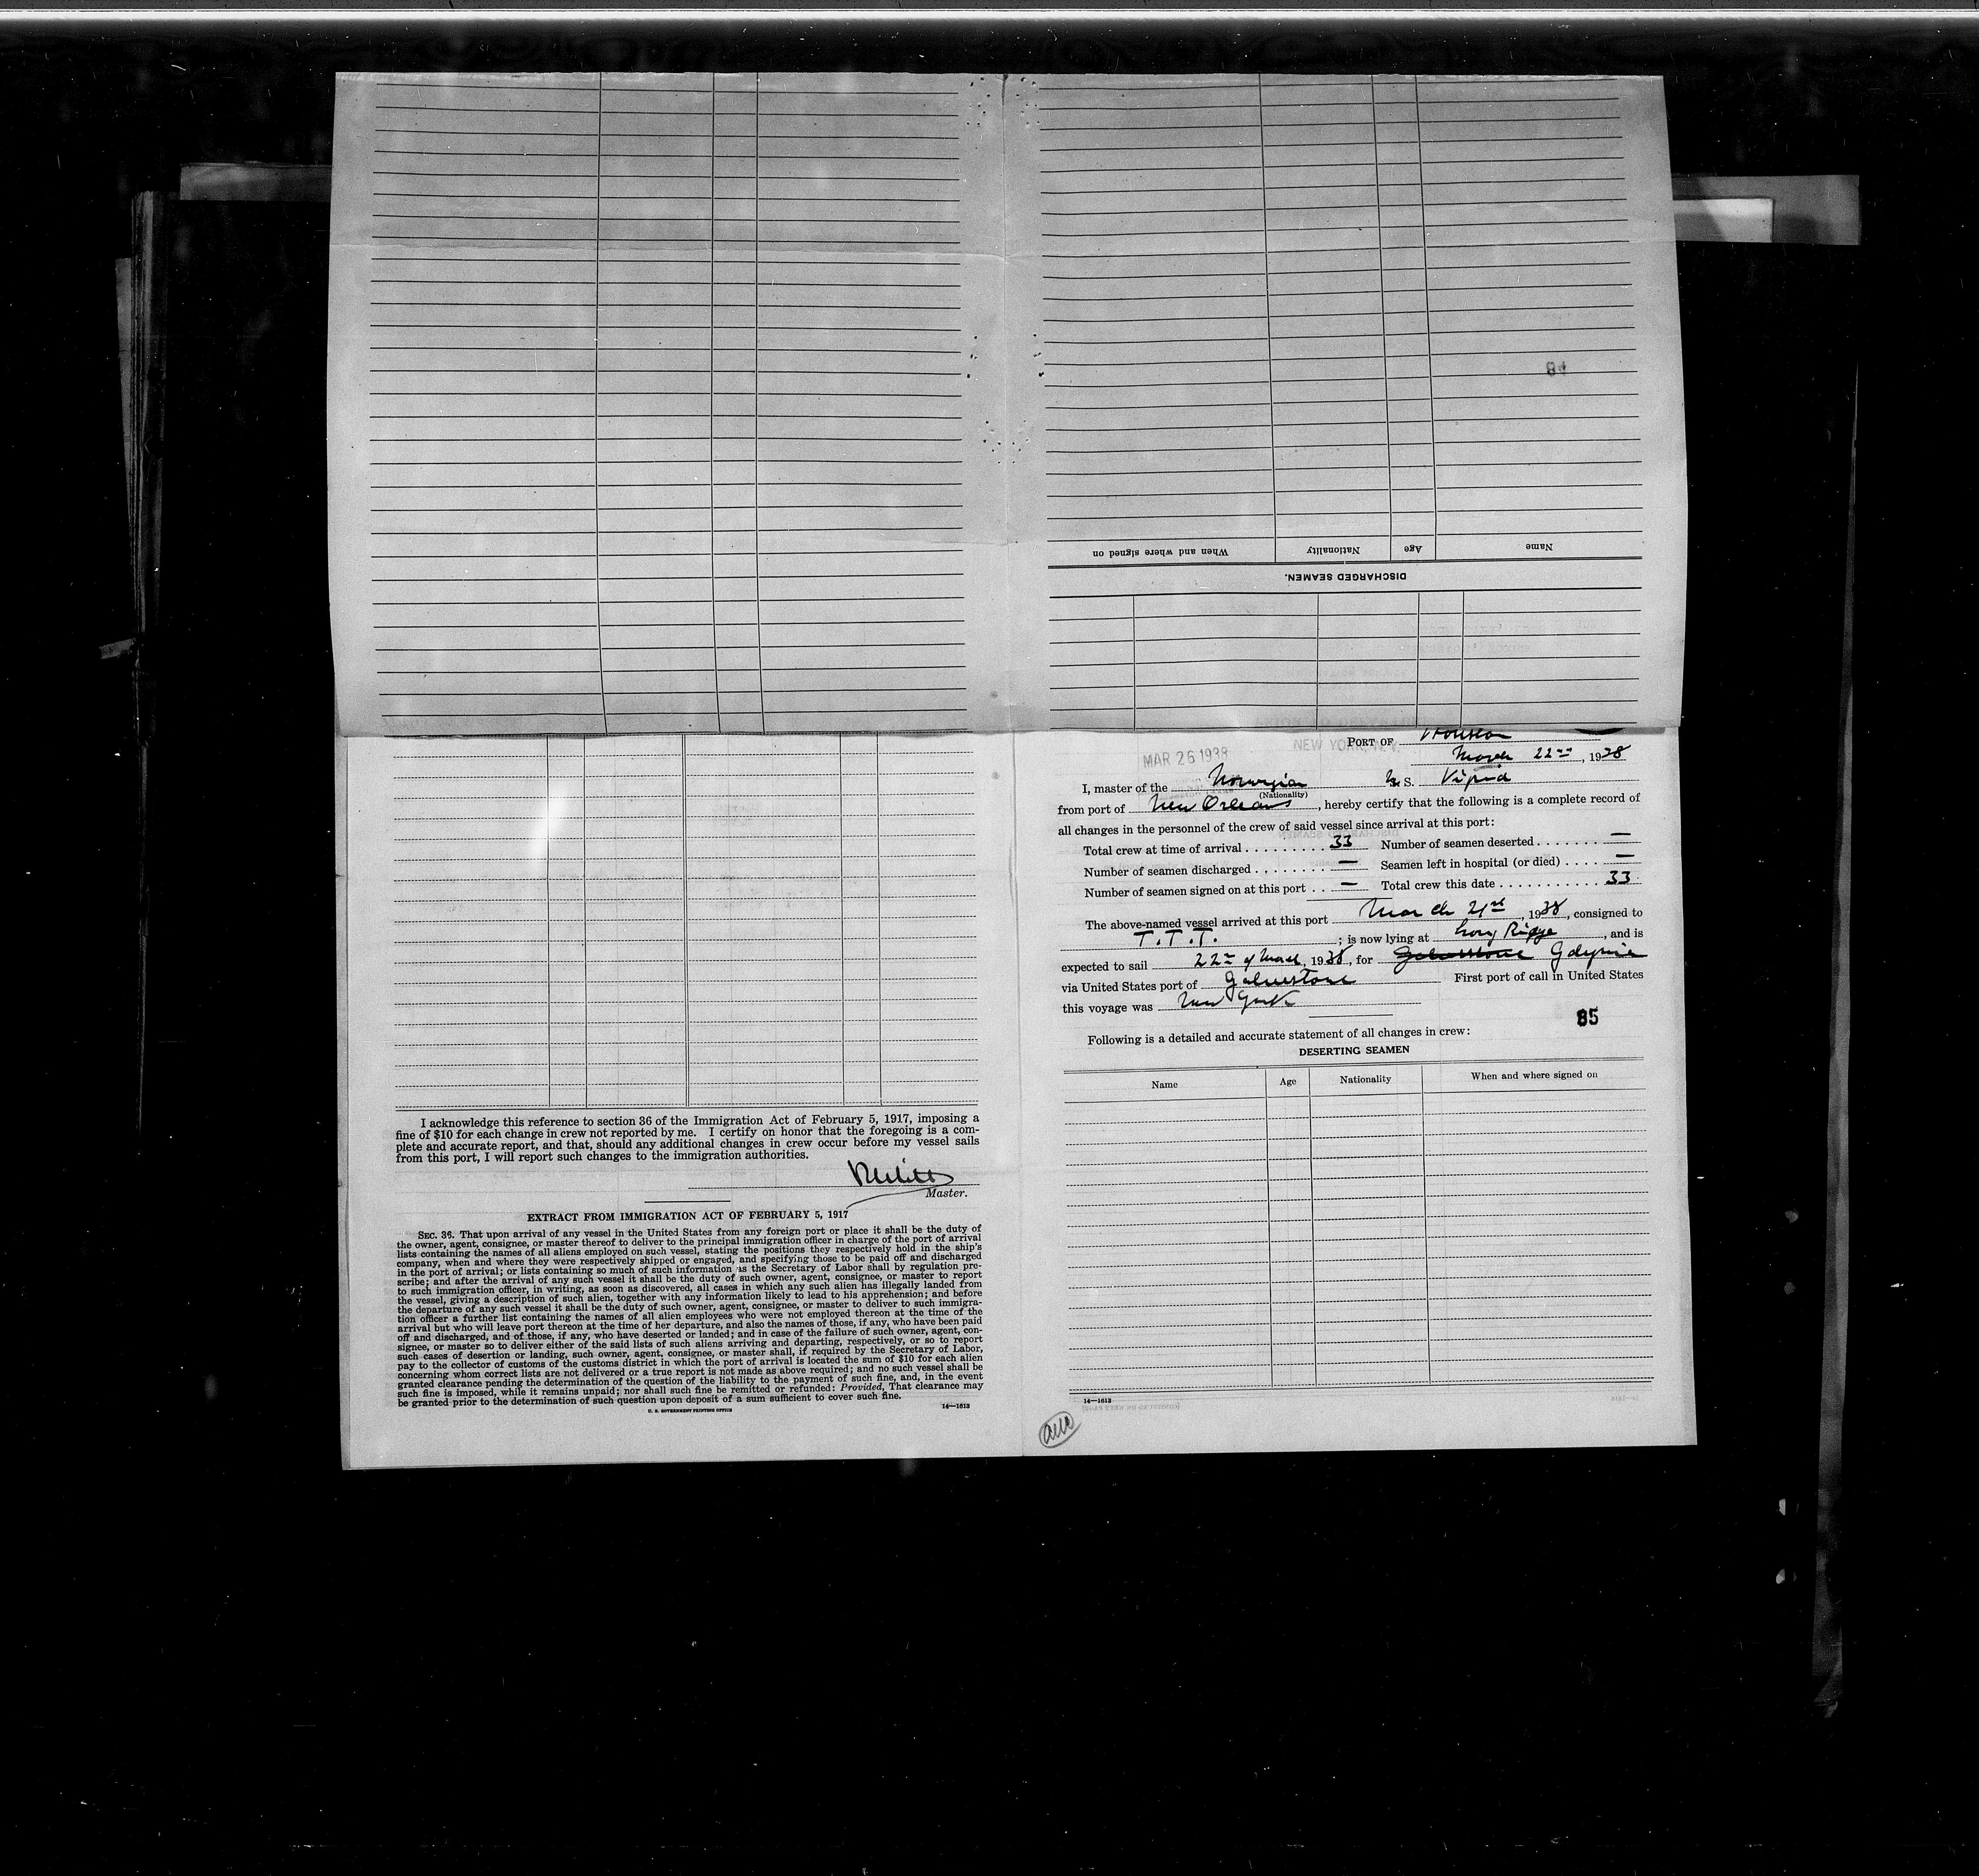 When and where signed on Nationality Age Name
DISCHARGED SEAMEN.
PORT OF Houston
MAR 26 1938 NEW YORK, N.Y.
March 22nd, 1938
I, master of the Norwegian M. S. Vigrid
(Nationality)
from port of New Orleans, hereby certify that the following is a complete record of
all changes in the personnel of the crew of said vessel since arrival at this port:
Total crew at time of arrival . . . . . . . . . 33 Number of seamen deserted . . . . . . . —
Number of seamen discharged . . . . . . . — Seamen left in hospital (or died) . . . . —
Number of seamen signed on at this port . . — Total crew this date . . . . . . . . . . . 33
The above-named vessel arrived at this port March 21st, 1938, consigned to
T.T.T. ; is now lying at Long Ridge, and is
expected to sail 22nd of March, 1938, for Galvestone Gdynia
via United States port of Galvestone First port of call in United States
this voyage was New York
85
Following is a detailed and accurate statement of all changes in crew:
DESERTING SEAMEN
Name Age Nationality When and where signed on
14—1613
I acknowledge this reference to section 36 of the Immigration Act of February 5, 1917, imposing a
fine of $10 for each change in crew not reported by me. I certify on honor that the foregoing is a com-
plete and accurate report, and that, should any additional changes in crew occur before my vessel sails
from this port, I will report such changes to the immigration authorities.
Master.
EXTRACT FROM IMMIGRATION ACT OF FEBRUARY 5, 1917
SEC. 36. That upon arrival of any vessel in the United States from any foreign port or place it shall be the duty of
the owner, agent, consignee, or master thereof to deliver to the principal immigration officer in charge of the port of arrival
lists containing the names of all aliens employed on such vessel, stating the positions they respectively hold in the ship's
company, when and where they were respectively shipped or engaged, and specifying those to be paid off and discharged
in the port of arrival; or lists containing so much of such information as the Secretary of Labor shall by regulation pre-
scribe; and after the arrival of any such vessel it shall be the duty of such owner, agent, consignee, or master to report
to such immigration officer, in writing, as soon as discovered, all cases in which any such alien has illegally landed from
the vessel, giving a description of such alien, together with any information likely to lead to his apprehension; and before
the departure of any such vessel it shall be the duty of such owner, agent, consignee, or master to deliver to such immigra-
tion officer a further list containing the names of all alien employees who were not employed thereon at the time of the
arrival but who will leave port thereon at the time of her departure, and also the names of those, if any, who have been paid
off and discharged, and of those, if any, who have deserted or landed; and in case of the failure of such owner, agent, con-
signee, or master so to deliver either of the said lists of such aliens arriving and departing, respectively, or so to report
such cases of desertion or landing, such owner, agent, consignee, or master shall, if required by the Secretary of Labor,
pay to the collector of customs of the customs district in which the port of arrival is located the sum of $10 for each alien
concerning whom correct lists are not delivered or a true report is not made as above required; and no such vessel shall be
granted clearance pending the determination of the question of the liability to the payment of such fine, and, in the event
such fine is imposed, while it remains unpaid; nor shall such fine be remitted or refunded: Provided, That clearance may
be granted prior to the determination of such question upon deposit of a sum sufficient to cover such fine.
U. S. GOVERNMENT PRINTING OFFICE 14—1613